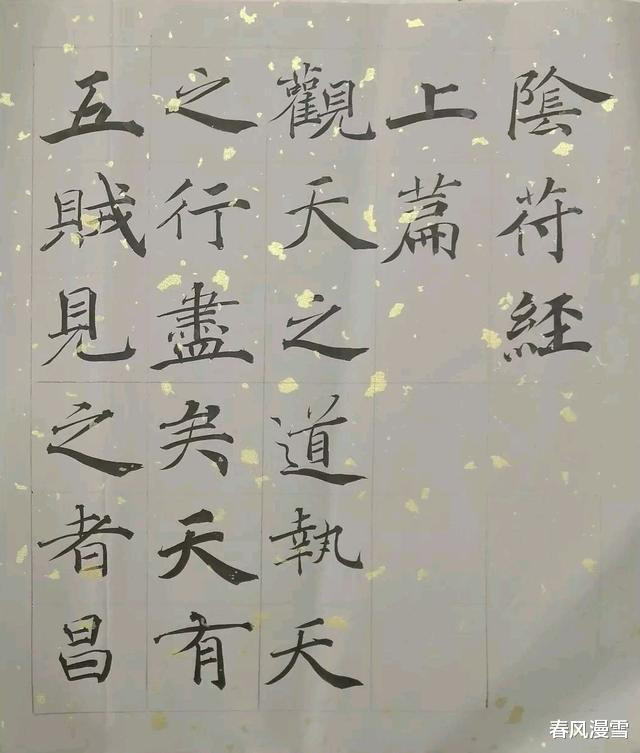 陰符經
上篇
觀天之道執天
之行盡矣天有
五賊見之者昌
春风漫雪